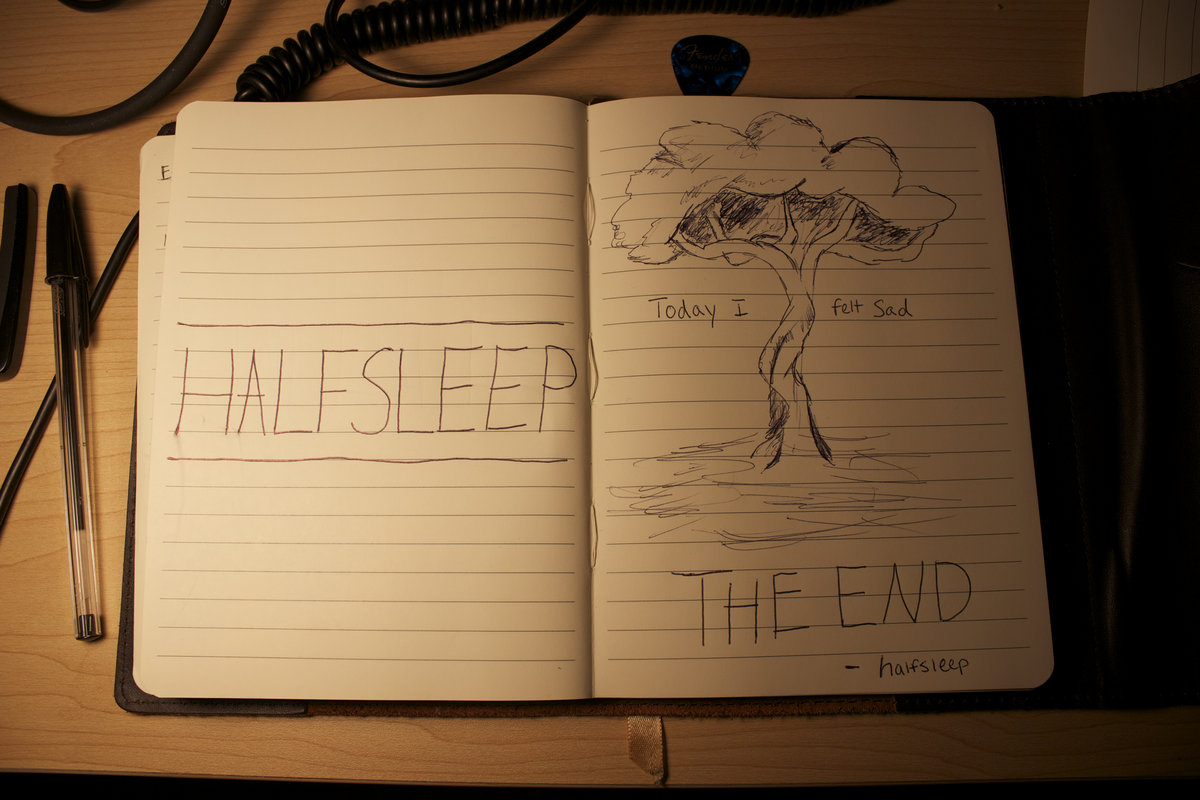 Fender
E
HALFSLEEP
Today I felt Sad
THE END
- halfsleep